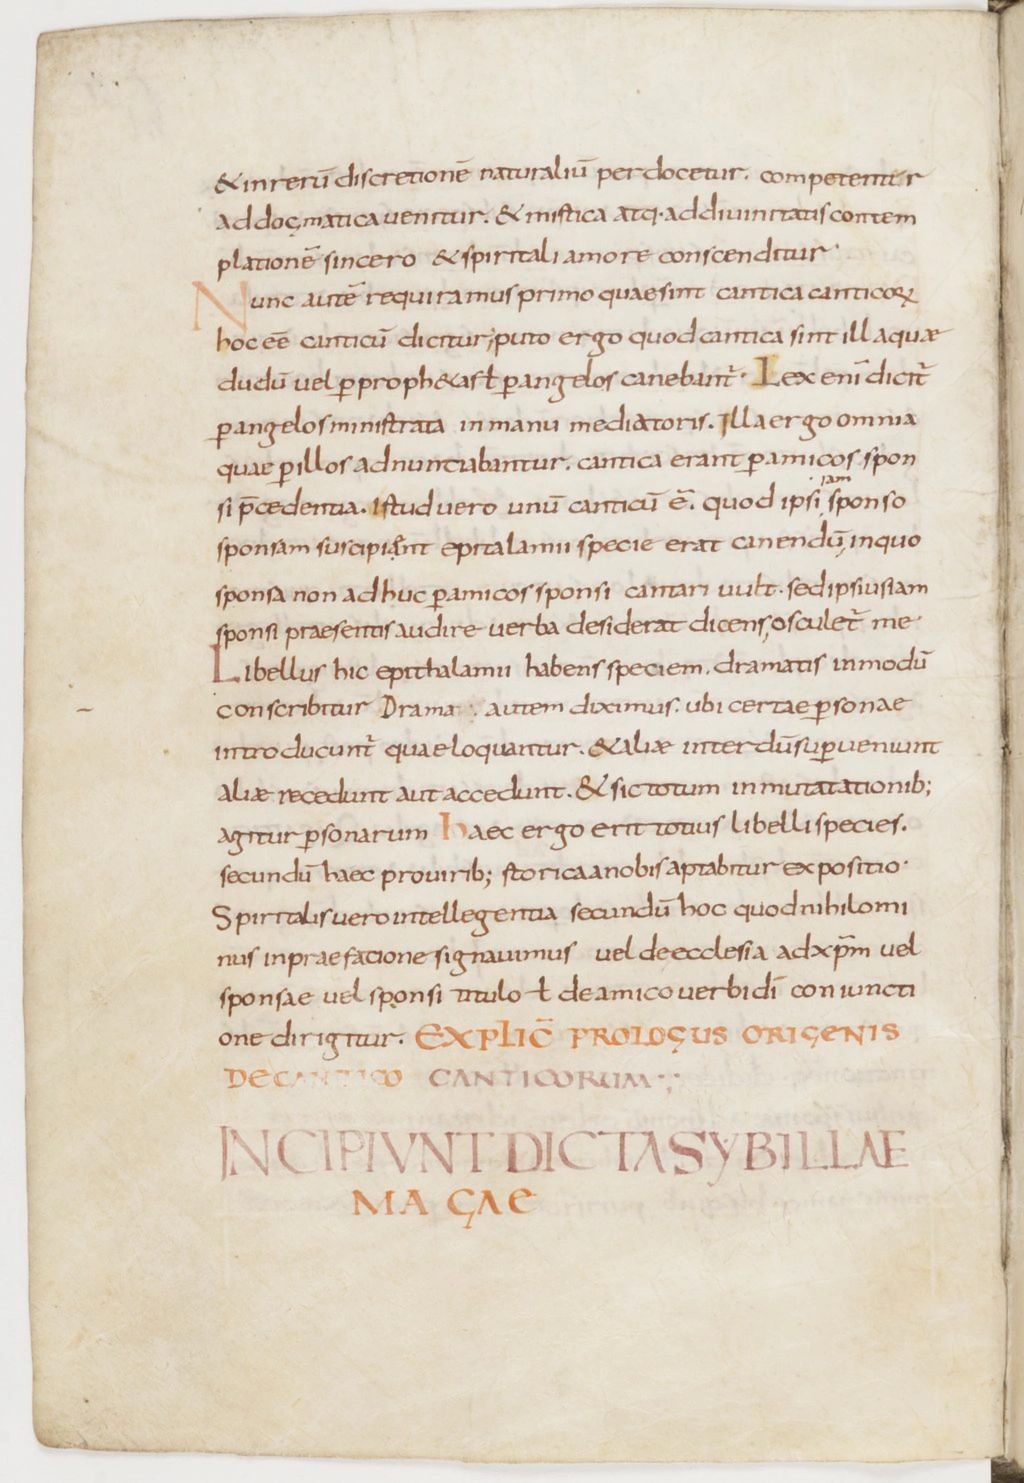 & in rerū discretionē naturaliū perdocetur. competenter
ad dogmatica venitur. & mistica atq· ad divinitatis contem
plationē sincero & spiritali amore conscenditur·
Nunc autē requiramus primo quae sint cantica canticoꝝ
hoc eē canticū dicitur; puto ergo quod cantica sint illa quæ
dudū vel ꝑ proph&as ł ꝑ angelos canebant᷑· Lex enī dicit᷑
ꝑ angelos ministrata in manu mediatoris. Illa ergo omnia
quae ꝑ illos adnuntiabantur. cantica erant ꝑ amicos spon
si p̄cedentia. Istud vero unū canticū ē. quod ipsi iam sponso
sponsam suscipiant epitalamii specie erat canendū, in quo
sponsa non adhuc ꝑ amicos sponsi cantari vult. sed ipsius iam
sponsi praesentis audire verba desiderat dicens, osculet᷑ me
Libellus hic epithalamii habens speciem. dramatis in modū
conscribitur Drama autem diximus. ubi certae ꝑsonae
introducunt᷑ quae loquantur. & aliæ interdū suꝑveniunt
aliæ recedunt aut accedunt. & sic totum in mutatationib;
agitur ꝑsonarum haec ergo erit totius libelli species.
secundū haec pro virib; storica a nobis aptabitur expositio·
Spiritalis vero intellegentia secundū hoc quod nihilomi
nus in praefatione signavimus vel de ecclesia ad xp̄m vel
sponsae vel sponsi titulo ł de amico verbi dī coniuncti
one dirigitur. EXPLIC̄ PROLOGUS ORIGENIS
DE CANTICO CANTICORUM
INCIPIVNT DICTA SYBILLAE
MAGAE